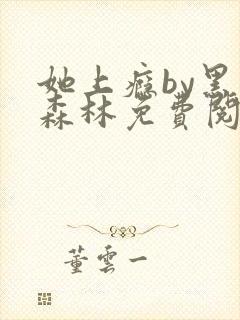 她上瘾by黑
森林免費閱
董雲一